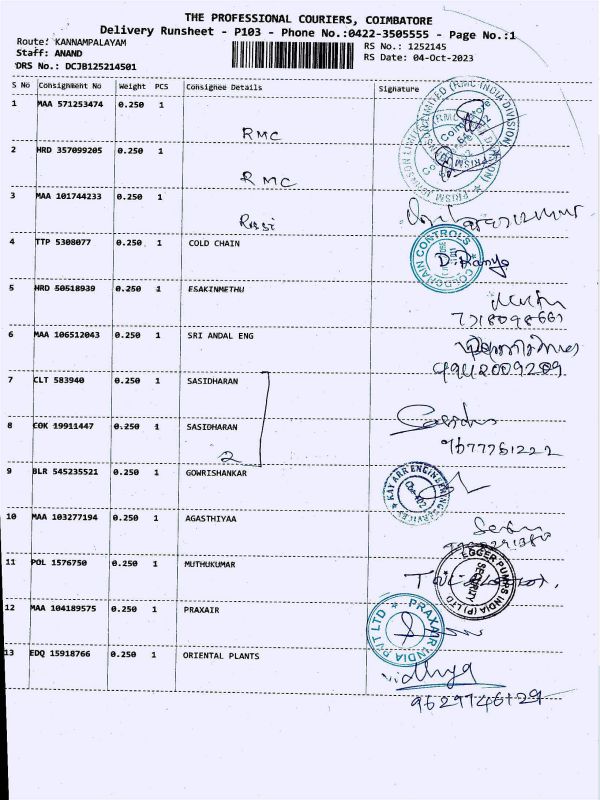 THE PROFESSIONAL COURIERS, COIMBATORE
Delivery Runsheet - P103 - Phone No.:0422-3505555 - Page No.:1
Route: KANNAMPALAYAM
RS No.: 1252145
Staff: ANAND
RS Date: 04-Oct-2023
DRS No.: DCJB125214501
S No Consignment No Weight PCS Consignee Details Signature
1 MAA 571253474 0.250 1
RMC
2 HRD 357099205 0.250 1
RMC
3 MAA 101744233 0.250 1
4 TTP 5308077 0.250 1 COLD CHAIN
D. Ramya
5 HRD 50518939 0.250 1 ESAKINMETHU
6 MAA 106512043 0.250 1 SRI ANDAL ENG
7 CLT 583940 0.250 1 SASIDHARAN
8 COK 19911447 0.250 1 SASIDHARAN
2
9677761222
9 BLR 545235521 0.250 1 GOWRISHANKAR
KAY ARR ENGINEERING SERVICES
10 MAA 103277194 0.250 1 AGASTHIYAA
11 POL 1576750 0.250 1 MUTHUKUMAR
EGGER PUMPS INDIA (P) LTD
SECURITY
12 MAA 104189575 0.250 1 PRAXAIR
PRAXAIR INDIA PVT LTD
13 EDQ 15918766 0.250 1 ORIENTAL PLANTS
Vidhya
9629746129